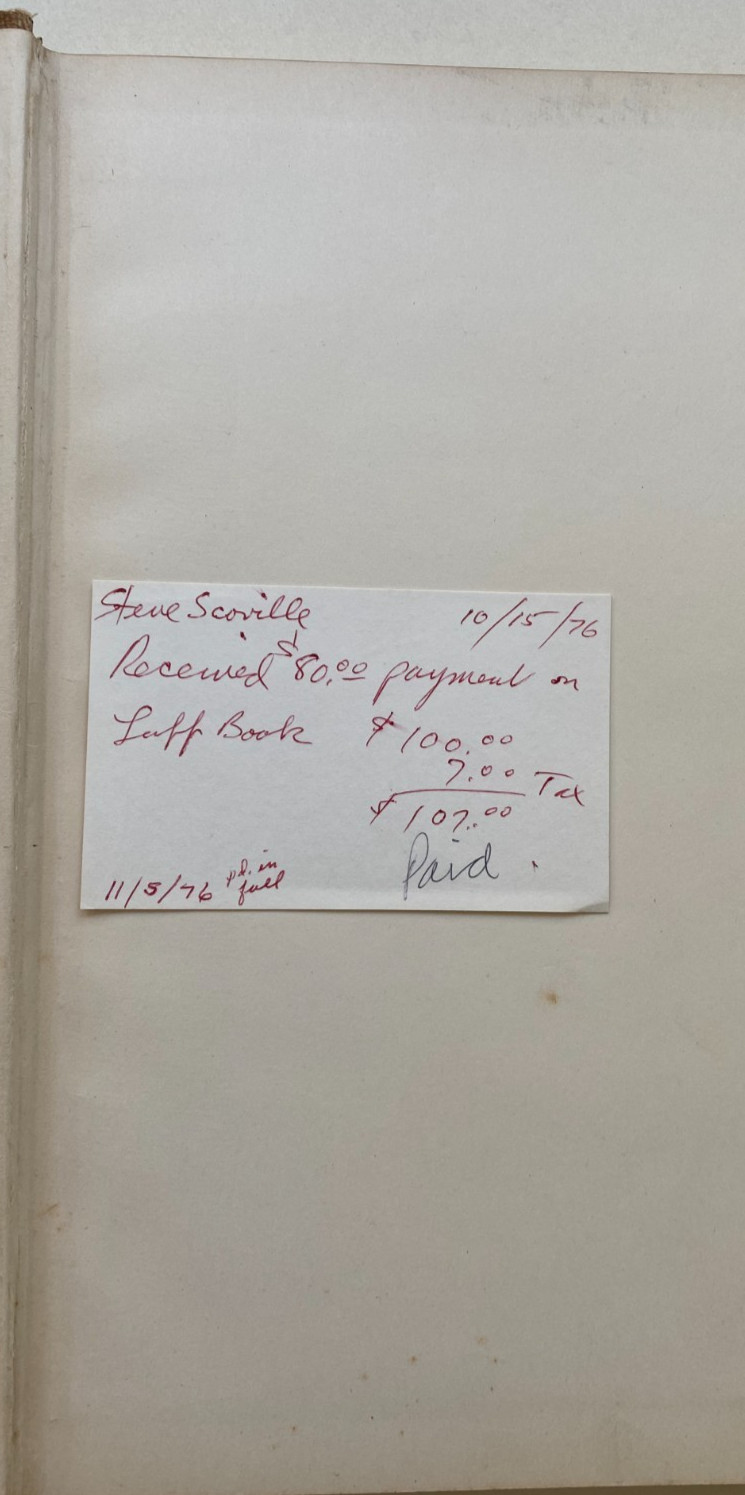 Steve Scoville 10/15/76
Received $80.00 payment on
Luff Book $100.00
7.00 Tax
$107.00
Paid.
11/5/76 pd. in
full